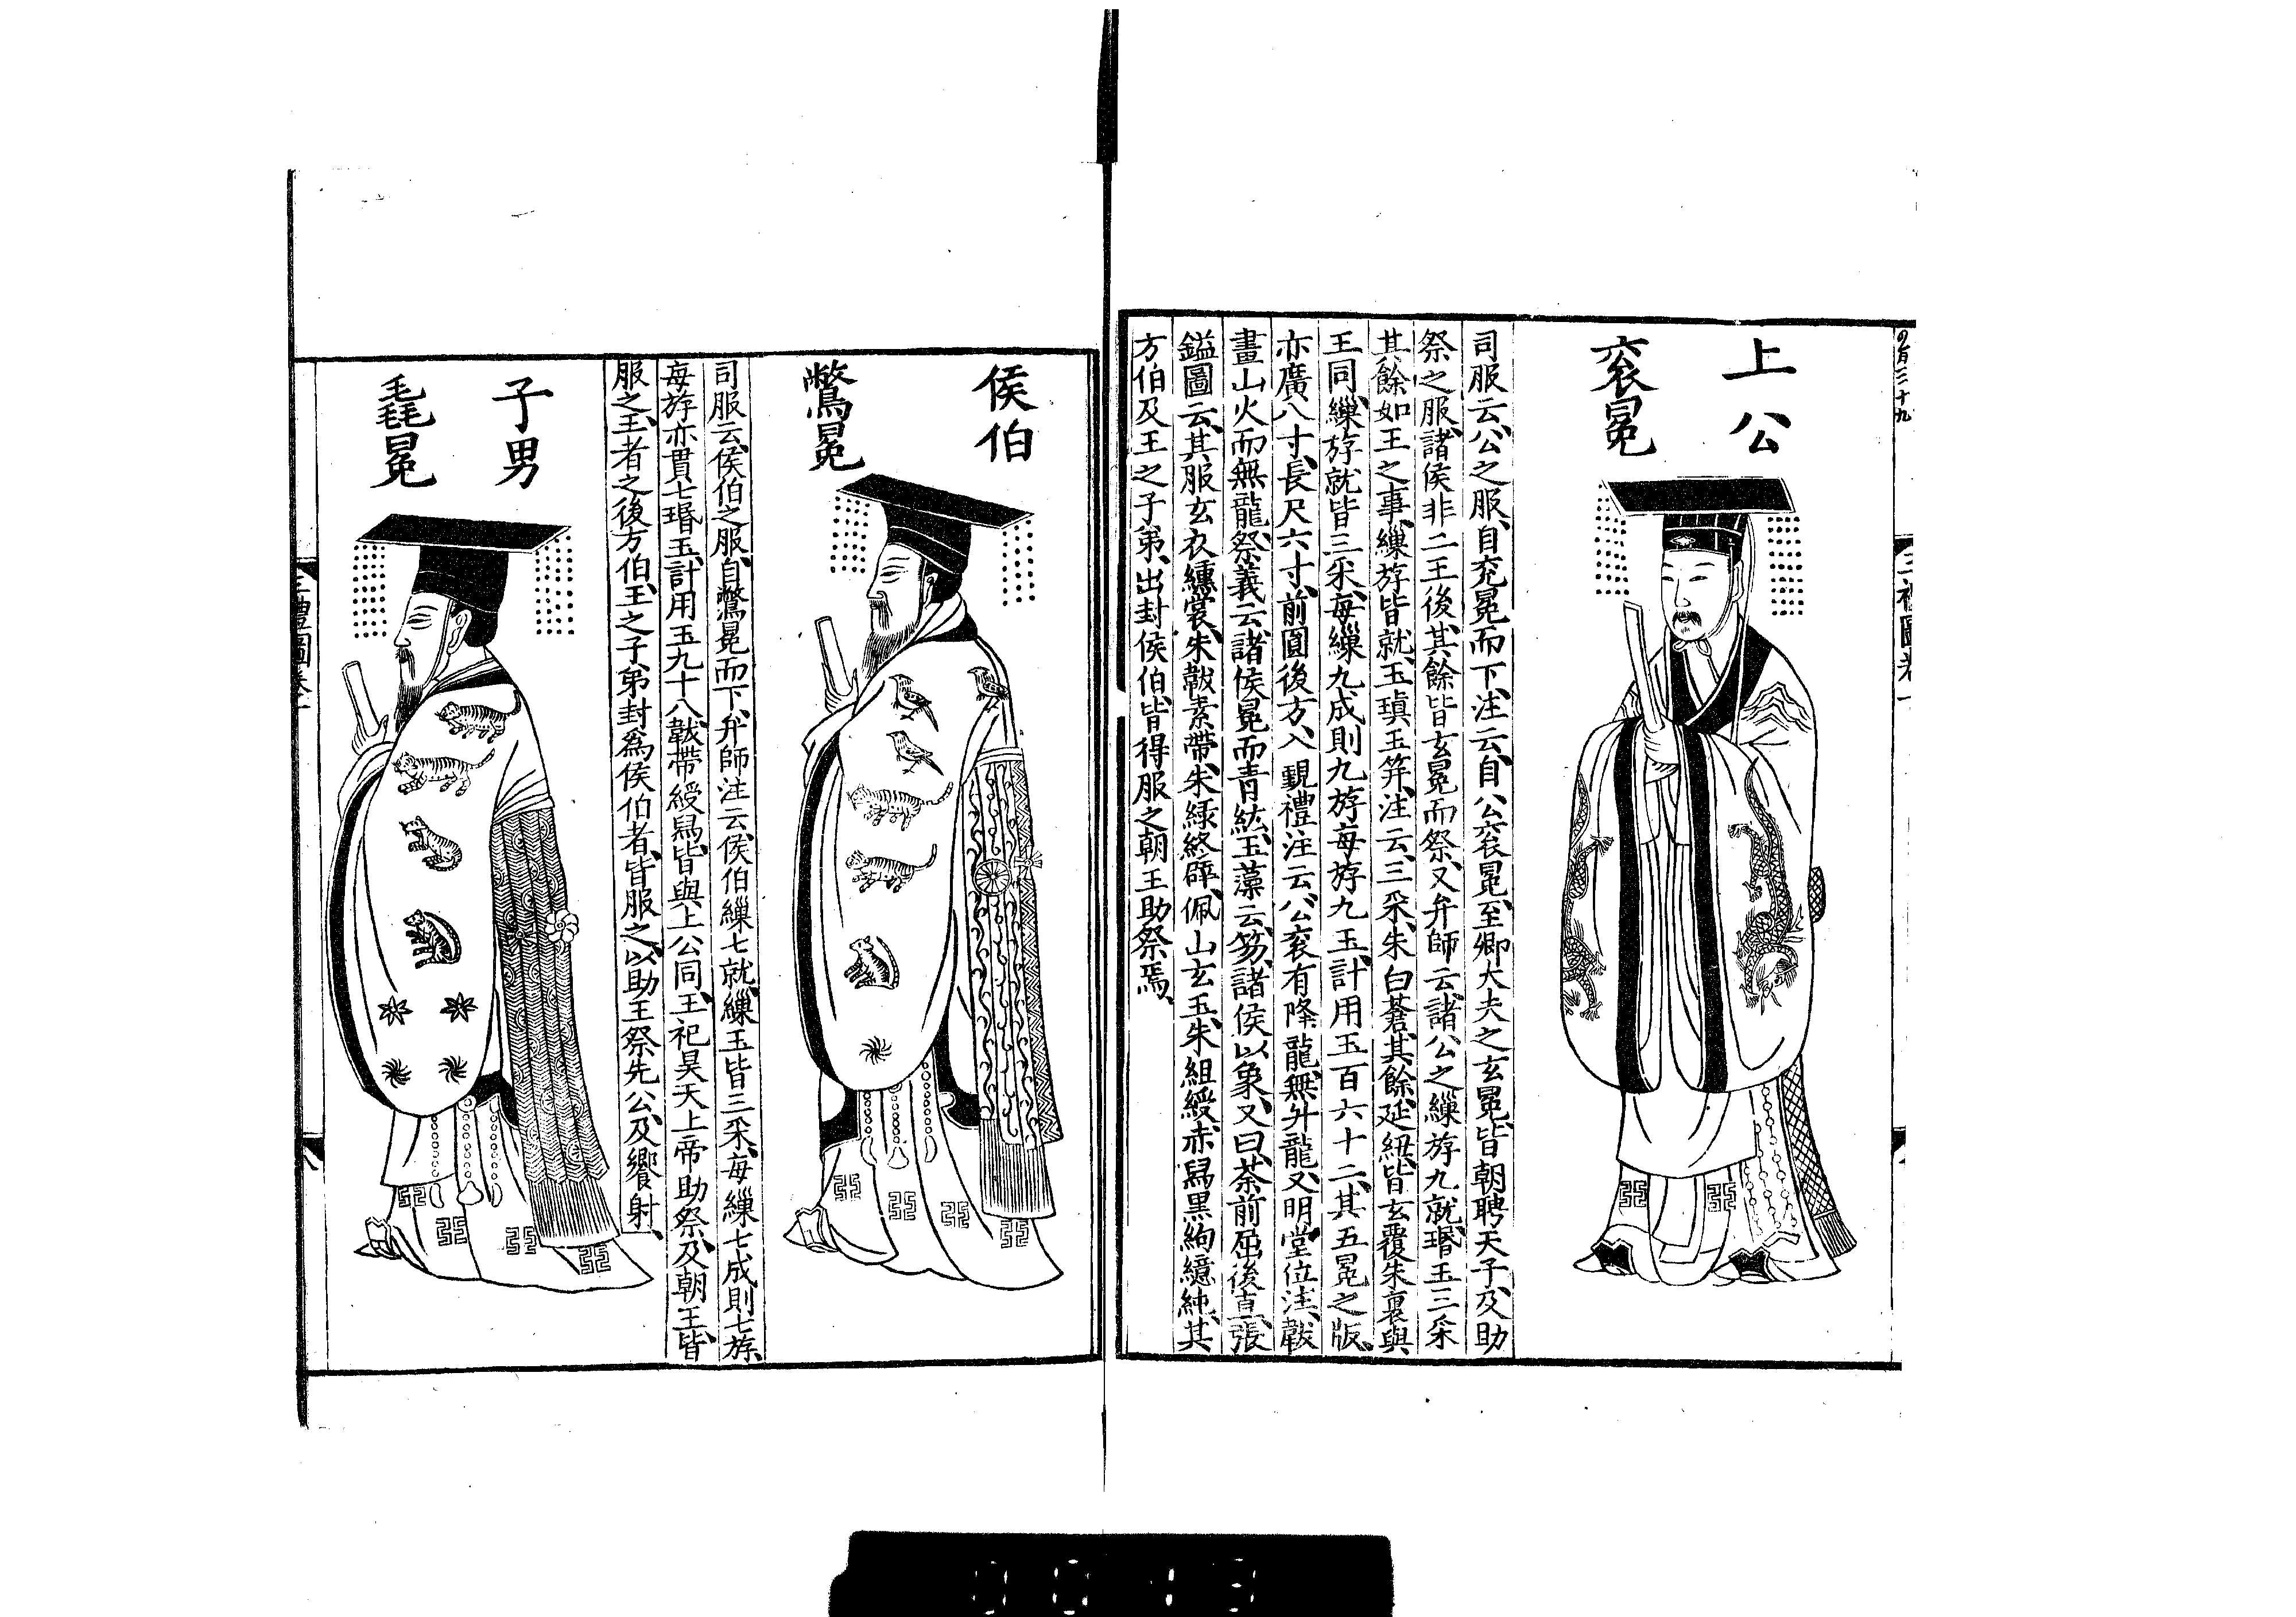 四百三十九
三禮圖卷一
上公
袞冕
司服云、公之服、自袞冕而下、注云、自公袞冕、至卿大夫之玄冕、皆朝聘天子、及助
祭之服、諸侯非二王後、其餘皆玄冕而祭、又弁師云、諸公之繅斿九就、瑉玉三采
其餘如王之事、繅斿皆就、玉瑱玉笄、注云、三采、朱白蒼、其餘、延紐、皆玄覆朱裏、與
王同、繅斿就皆三采、每繅九成、則九斿、每斿九玉、計用玉百六十二、其五冕之版、
亦廣八寸、長尺六寸、前圓後方、入覲禮注云、公袞有降龍、無升龍、又明堂位注、韍
畫山火而無龍、祭義云、諸侯冕而青紘、玉藻云、笏、諸侯以象、又曰、荼前屈後直、張
鎰圖云、其服玄衣纁裳、朱韍素帶、朱緑終辟、佩山玄玉、朱組綬、赤舄黒絇繶純、其
方伯及王之子弟、出封侯伯、皆得服之、朝王助祭焉、
侯伯
鷩冕
司服云、侯伯之服、自鷩冕而下、弁師注云、侯伯繅七就、繅玉皆三采、每繅七成、則七斿、
每斿亦貫七瑉玉、計用玉九十八、韍帶綬舄、皆與上公同、王祀昊天上帝助祭、及朝王、皆
服之、王者之後、方伯、王之子弟封爲侯伯者、皆服之、以助王祭先公、及饗射、
子男
毳冕
三禮圖卷一
八
0013